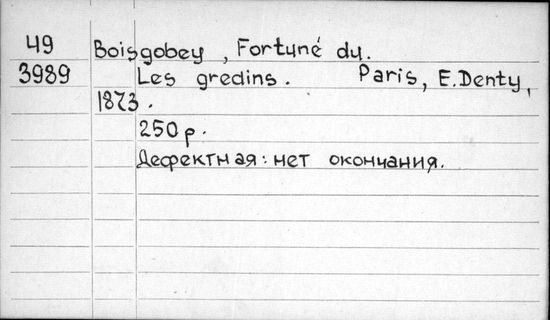 49 Boisgobey, Fortuné du.
3989 Les gredins. Paris, E.Denty,
1873.
250 p.
Дефектная: нет окончания.